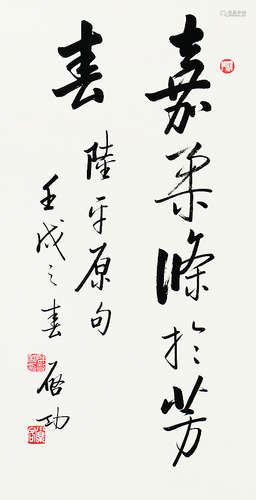 嘉柔條於芳
春
陸平原句
壬戌之春
啟功